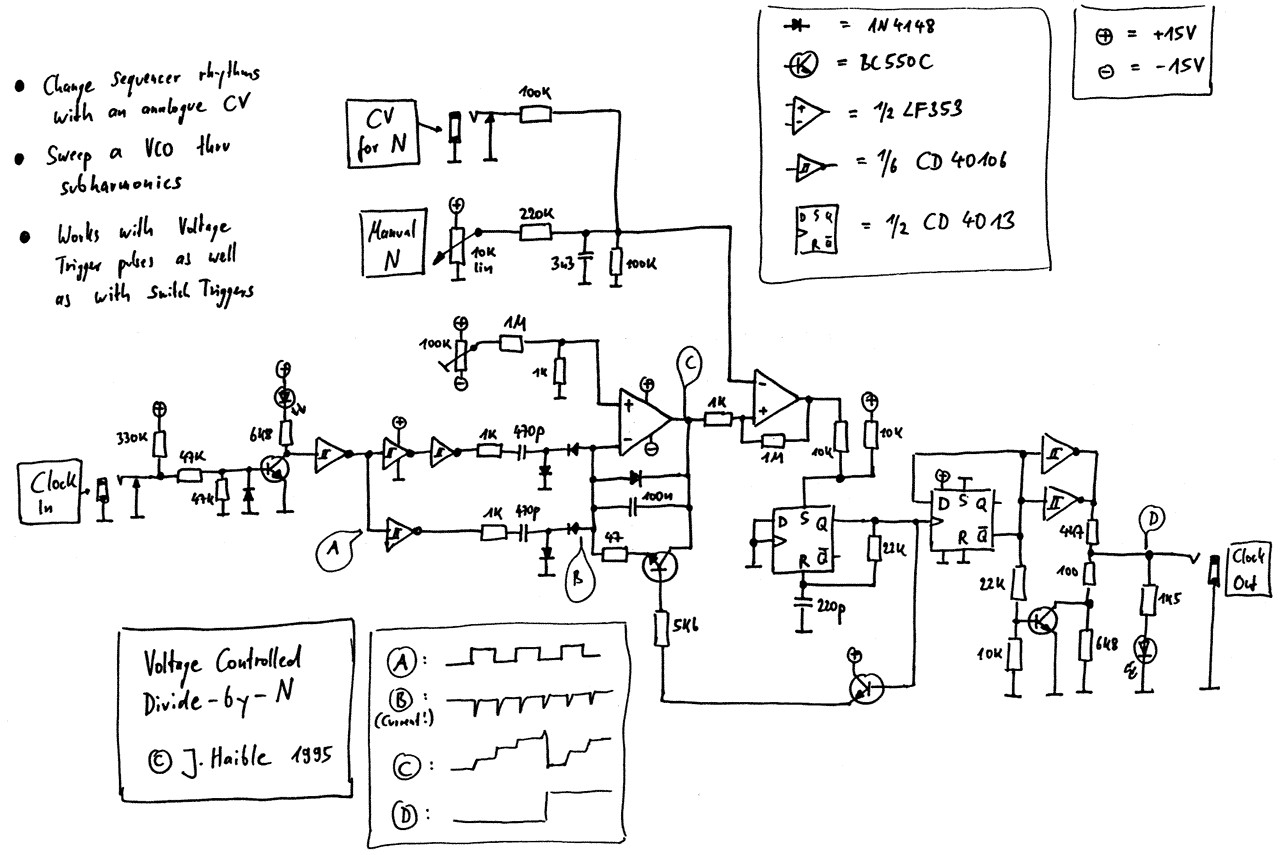 ● Change sequencer rhythms
with an analogue CV
● Sweep a VCO thru
subharmonics
● Works with Voltage
Trigger pulses as well
as with Switch Triggers
= 1N4148
= BC550C
= 1/2 LF353
= 1/6 CD 40106
D S Q
R Q̅
= 1/2 CD 4013
⊕ = +15V
⊖ = -15V
CV
for N
100K
Manual
N
⊕
10K
lin
220K
3n3
100K
⊕
100K
⊖
1M
1K
C
⊕
+
-
⊖
1K
-
+
1M
10K
⊕
10K
Clock
In
⊕
330K
47K
47K
⊕
6K8
⊕
1K
470p
1K
470p
A
B
100n
47
5K6
D S Q
R Q̅
22K
220p
⊕
⊕
D S Q
R Q̅
22K
10K
4K7
100
6K8
D
1K5
Clock
Out
Voltage Controlled
Divide-by-N
© J. Haible 1995
A :
B :
(Current!)
C :
D :